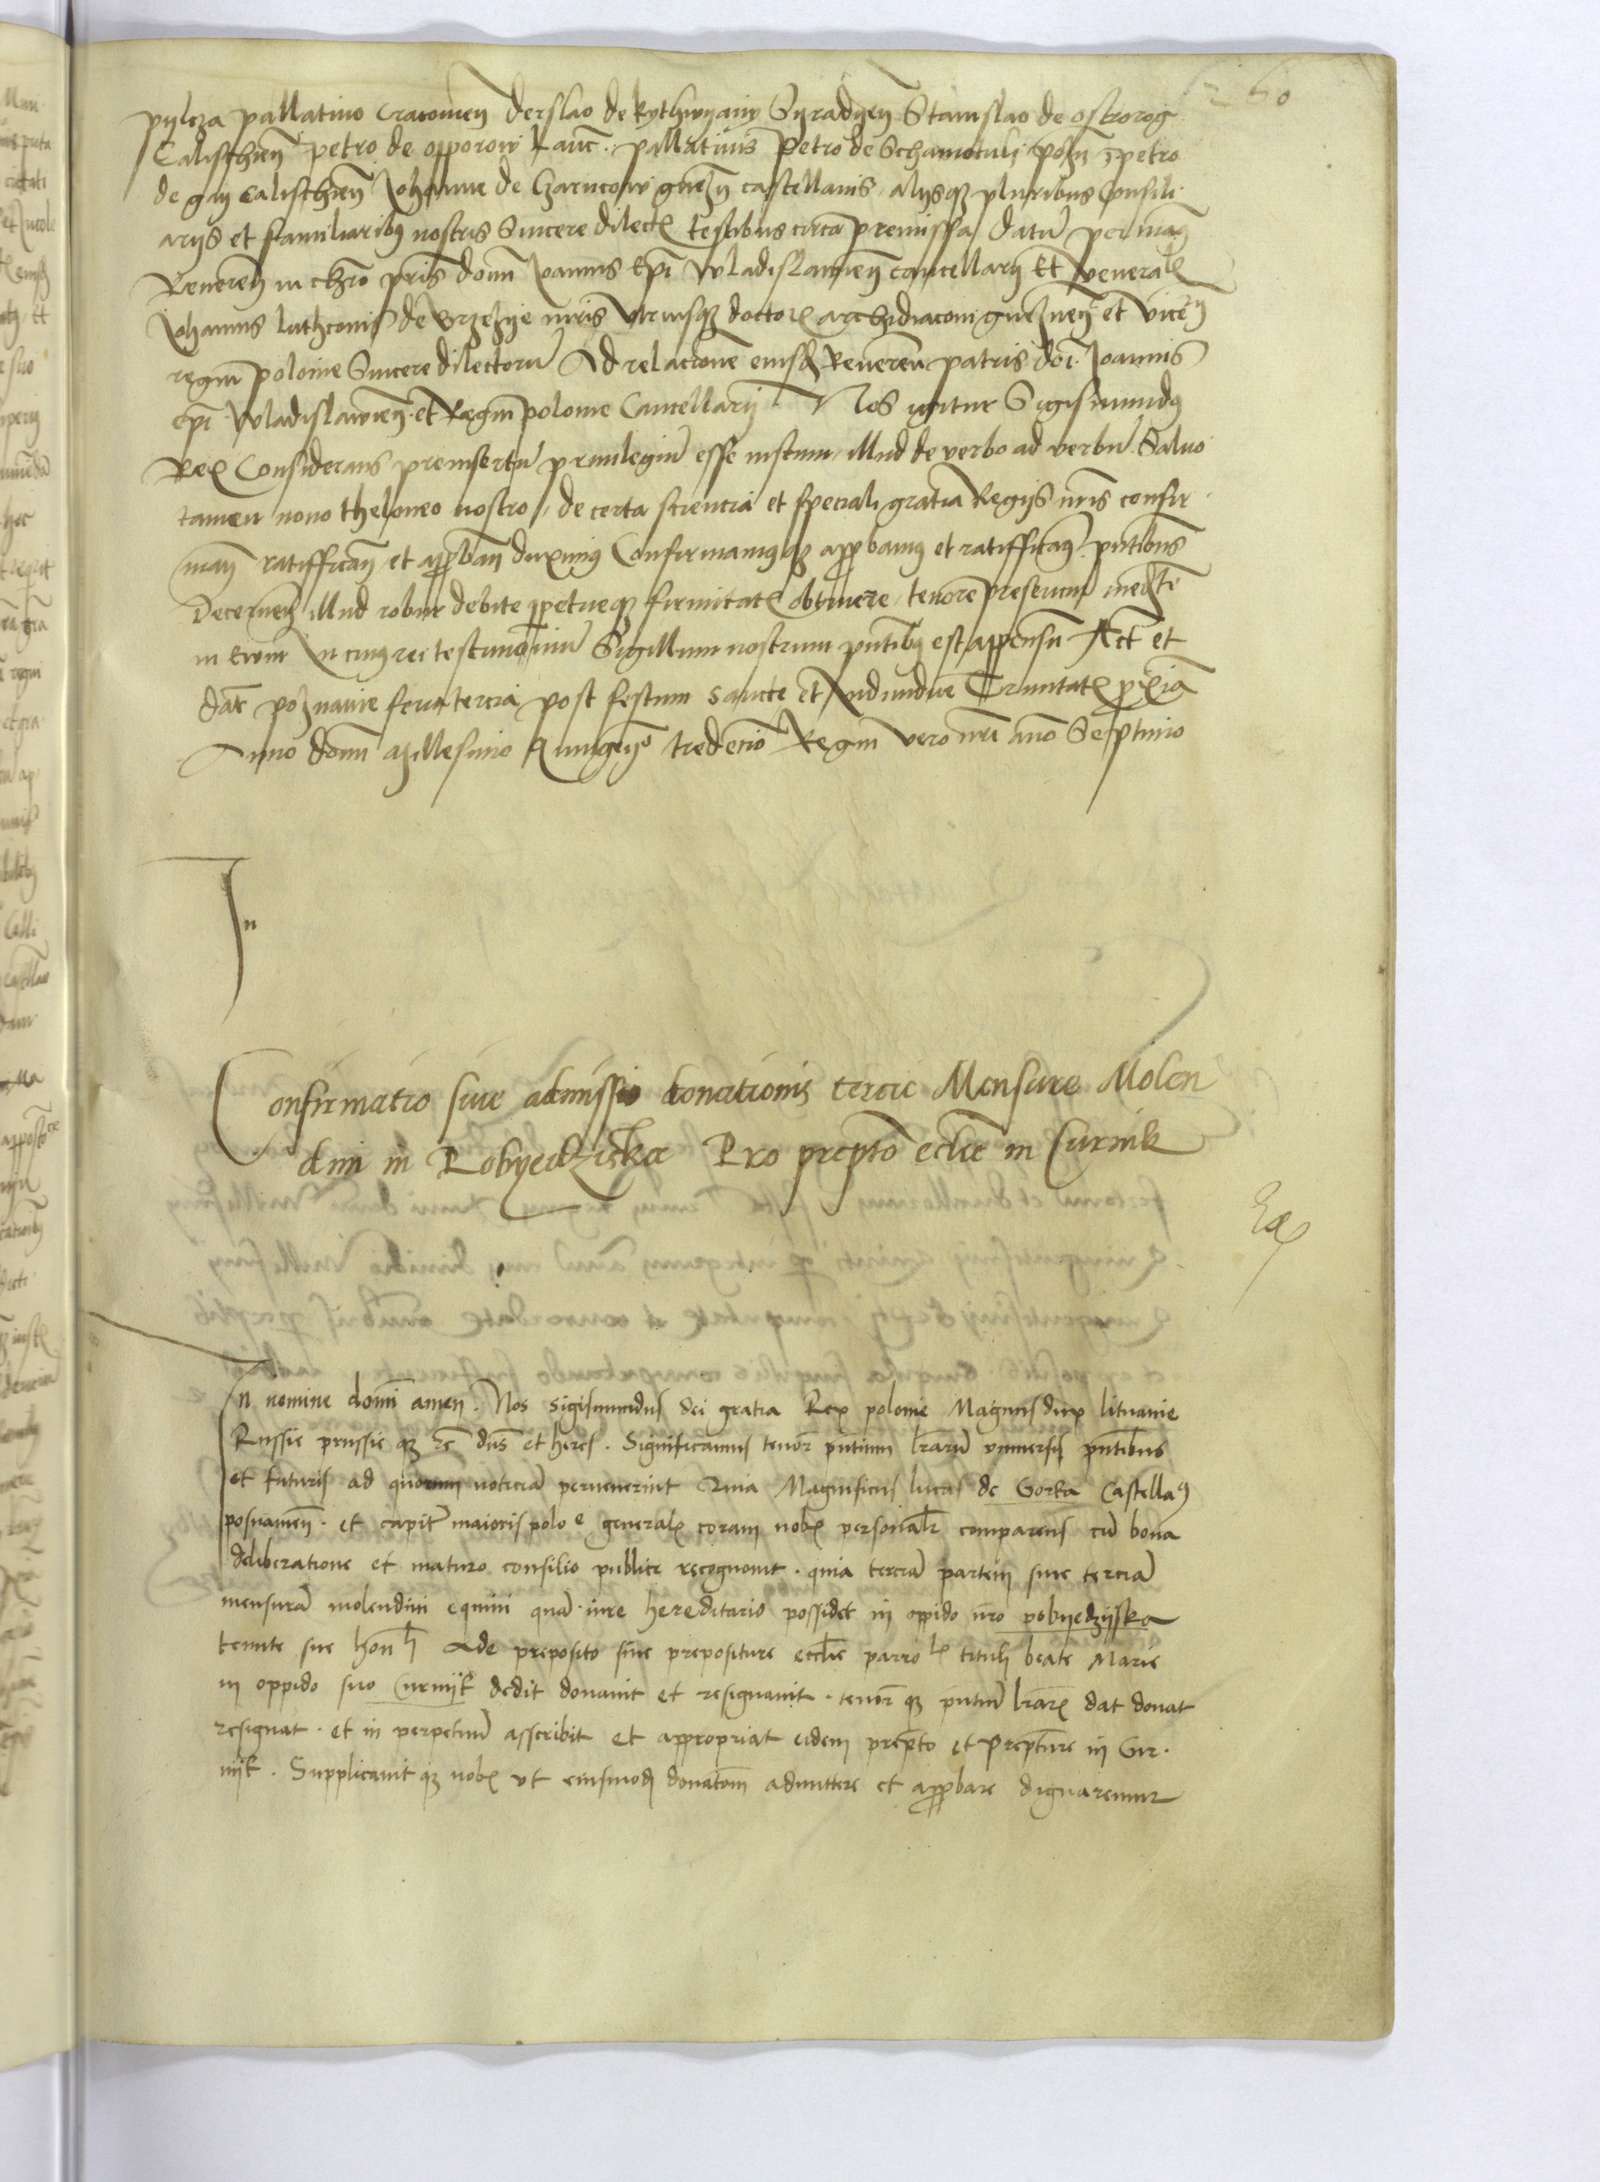 60
pylcza pallatino Cracovien̄ Derslao de Rythwyany Syradyen̄ Stanislao de ostrorog
Calischien̄ petro de opporow Lanc̄. pallatinis Petro de Schamotuli pozn̄ petro
de gay Calischien̄ Johanne de Czarncow gnezn̄ castellanis. alysqz pluribus Consili
arys et familiaribꝫ nostris Sincere dilect̄ testibus circa premissa Datū per man̄
Reueren̄ in chro pris domī Joannis Ep̄i Wladislauien̄ cancellary Et Venerab̄
Johannis luthconis de Brzezye iuris Vtriusqz doctor̄ archidiaconi gneznen̄ et vicecn̄
regni polonie Sincere dilectorū Ad relacionē eiusd̄ Reueren̄ patris dōi. Joannis
ep̄i. Wladislauien̄. et Regni polonie Cancellarij Nos igitur Sigismundꝫ
Rex Considerans preinsertū priuilegiū esse iustum, illud de verbo ad verbū. Saluo
tamen nouo theloneo nostro, de certa sciencia et speciali gratia Regijs nr̄is confir
man̄ ratifican̄ et approban̄ duximꝫ Confirmamꝫqz approbamꝫ et ratifficamꝫ pn̄tibus
Decernen̄ illud robur debite perpetueqz firmitat̄ obtinere, tenore presencium mediāte
in Euum In cuius rei testimoniū Sigillum nostrum pn̄tibꝫ est appensū Act̄ et
dat̄ poznanie feria tercia post festum sancte et Indiuidue Trinitat̄ proxia
Anno domī Millesimo Quingēo tredecīo Regni vero nr̄i anō Septimo
In
Confirmatio siue admissio donationis tercie Mensure Molen
dini in Pobyedziska Pro prepto eccl̄ie in Curnik
In nomine domī amen. Nos Sigismundus dei gratia Rex polonie Magnus dux lituanie
Russie prussie qz etc̄ dn̄s et heres. Significamus tenor̄ pn̄tium lr̄arū vniuersis pn̄tibus
et futuris ad quorum noticiā peruenerint Quia Magnificus lucas de Gorka Castellaꝰ
posnanien̄. et capit̄ maioris poloᵉ general̄ coram nob̄ personal̄r comparens cū bona
deliberatione et maturo consilio publice recognouit. quia terciā partem siue terciā
mensurā molendini equini quā iure hereditario possidet in oppido nr̄o pobyedzyska
tenute sue hon̄l̄i Ade preposito siue prepositure eccl̄ie parrol̄ tituli beate Marie
in oppido suo Curnyk dedit donauit et resignauit. tenor̄ qz pn̄tiū lr̄ar̄ dat donat
resignat. et in perpetuū asscribit et appropriat eidem prep̄to et Prep̄ture in Cur.
nyk. Supplicauit qz nob̄ vt eiusmod̄i donatōem admittere et approbare dignaremur